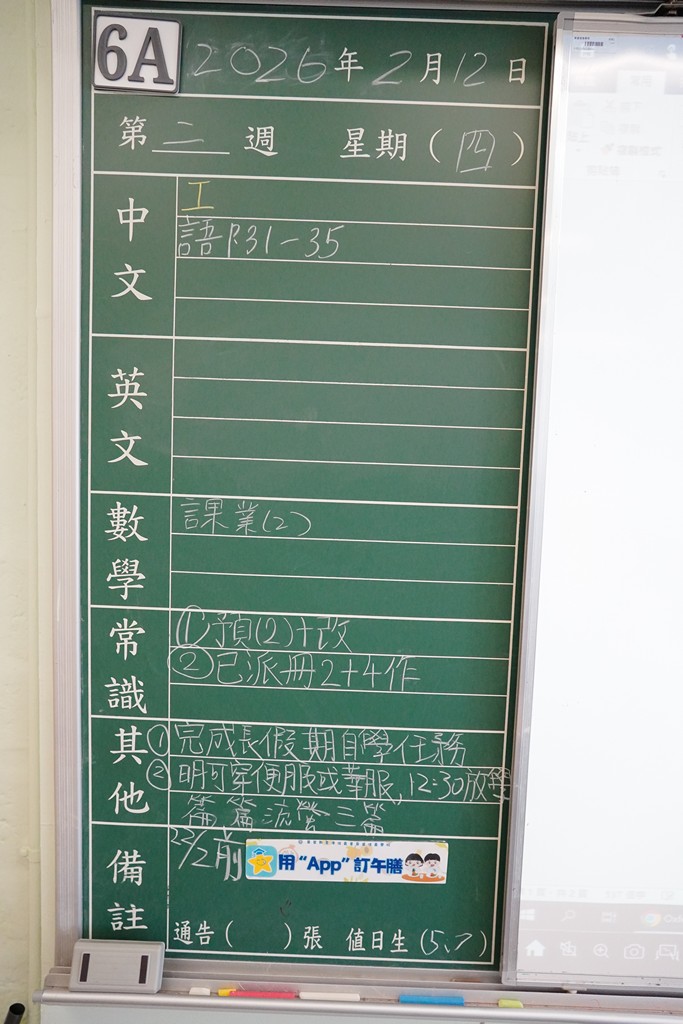 6A 2026年2月12日
第二週 星期(四)
中文
工
語P.31-35
英文
數學
課業(2)
常識
①預(2)+改
②已派冊2+4作
其他
①完成長假期自學任務
②明可穿便服或華服,12:30放學
篇篇流螢三篇
備註
22/2前
用“App”訂午膳
通告( )張 值日生(5,7)